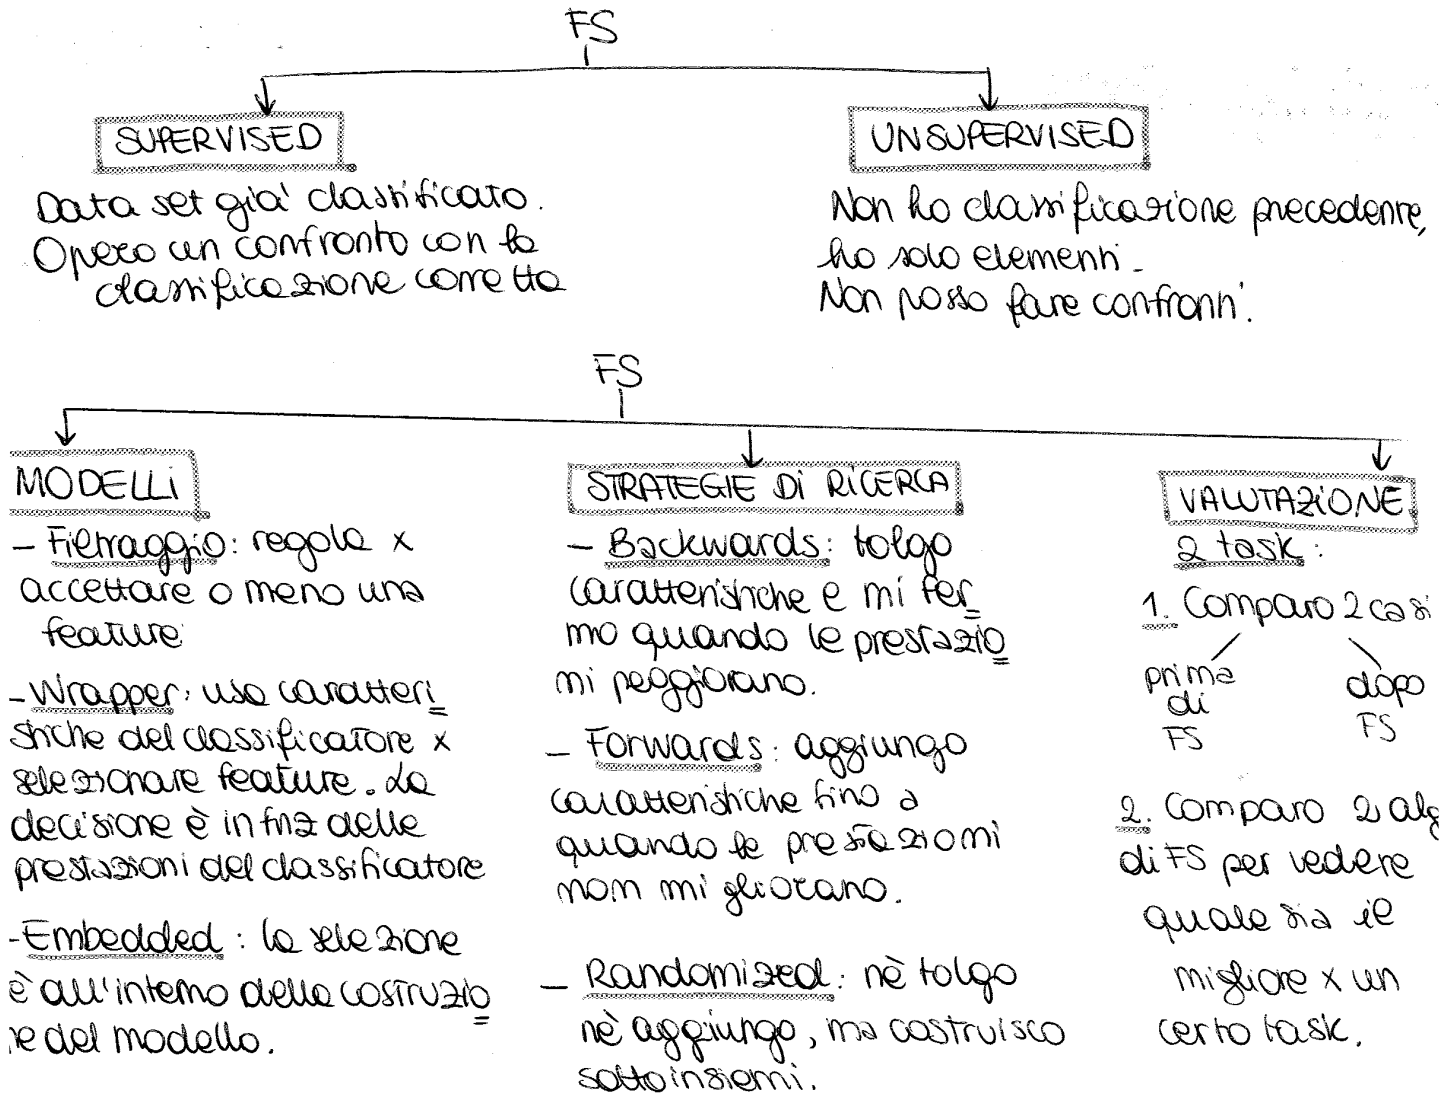 FS
SUPERVISED
Data set già classificato.
Opero un confronto con la
classificazione corretta
UNSUPERVISED
Non ho classificazione precedente,
ho solo elementi.
Non posso fare confronti.
FS
MODELLI
- Filtraggio: regola x
accettare o meno una
feature
- Wrapper: uso caratteri
stiche del classificatore x
selezionare feature. La
decisione è in fnz delle
prestazioni del classificatore
- Embedded: la selezione
è all'interno della costruzio
ne del modello.
STRATEGIE DI RICERCA
- Backwards: tolgo
caratteristiche e mi fer
mo quando le prestazio
ni peggiorano.
- Forwards: aggiungo
caratteristiche fino a
quando le prestazioni
non migliorano.
- Randomized: nè tolgo
nè aggiungo, ma costruisco
sottoinsiemi.
VALUTAZIONE
2 task:
1. Comparo 2 casi
prima
di
FS
dopo
FS
2. Comparo 2 alg
di FS per vedere
quale sia il
migliore x un
certo task.